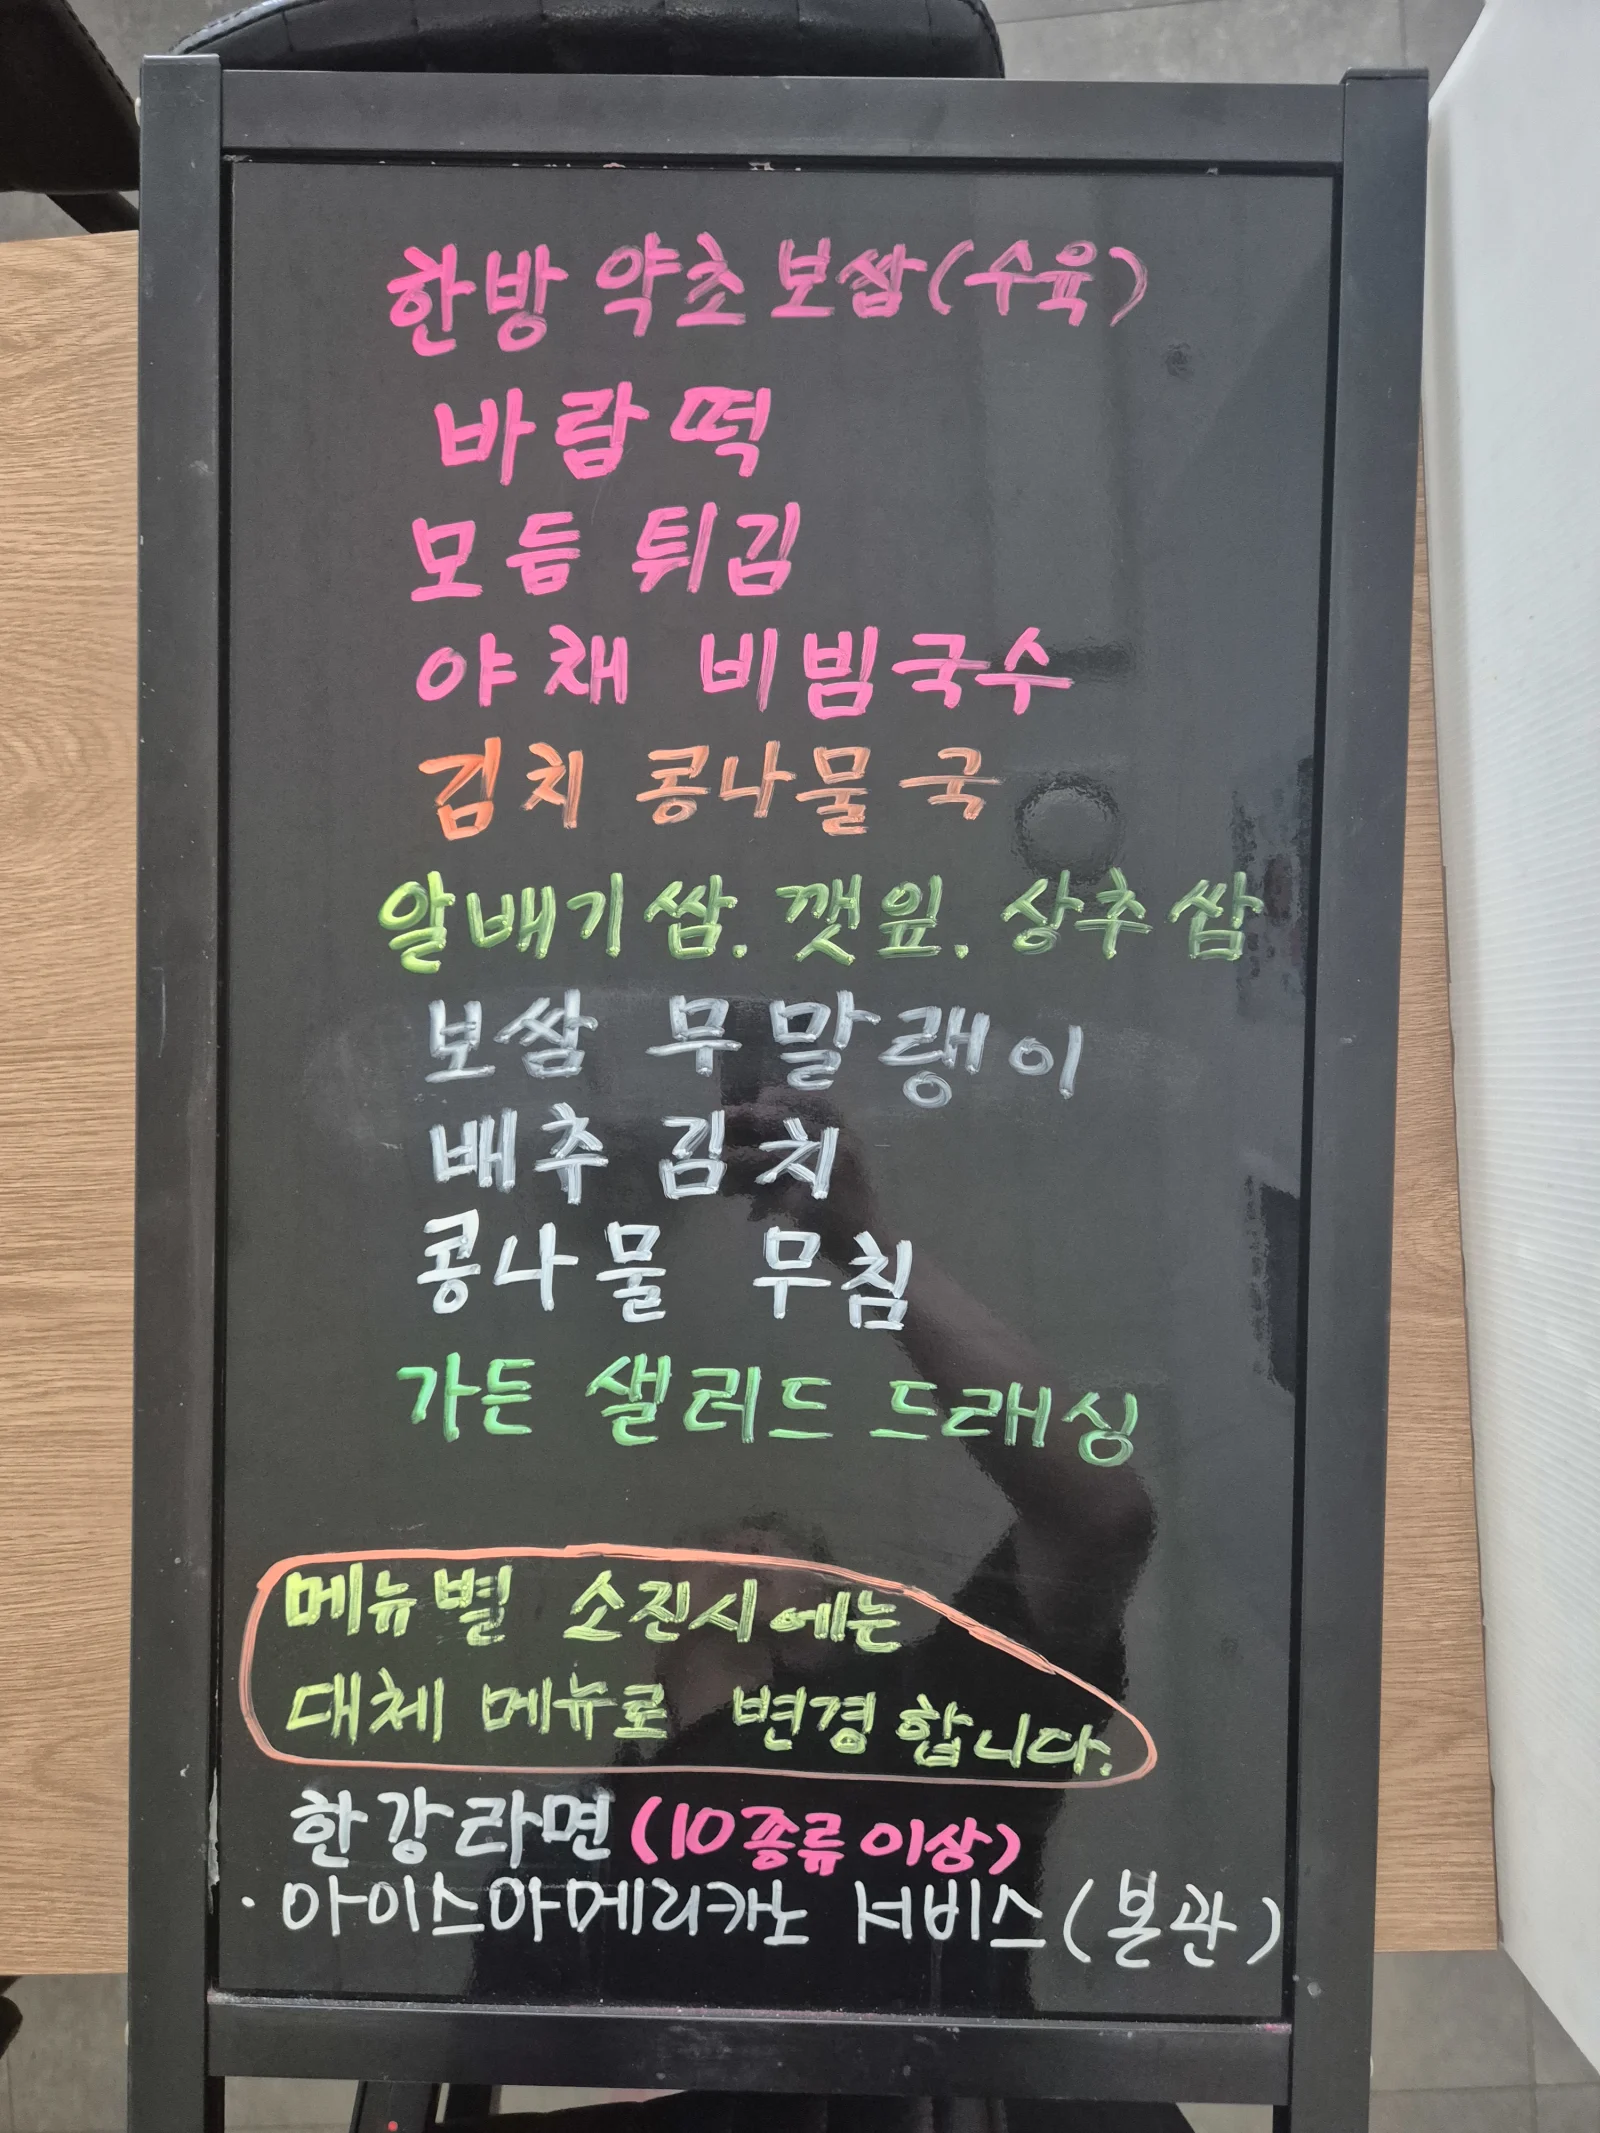 한방 약초 보쌈(수육)
바람떡
모듬 튀김
야채 비빔국수
김치 콩나물국
알배기쌈. 깻잎. 상추쌈
보쌈 무말랭이
배추김치
콩나물 무침
가든 샐러드 드래싱
메뉴별 소진시에는
대체 메뉴로 변경합니다.
한강라면(10종류이상)
· 아이스아메리카노 서비스(본관)